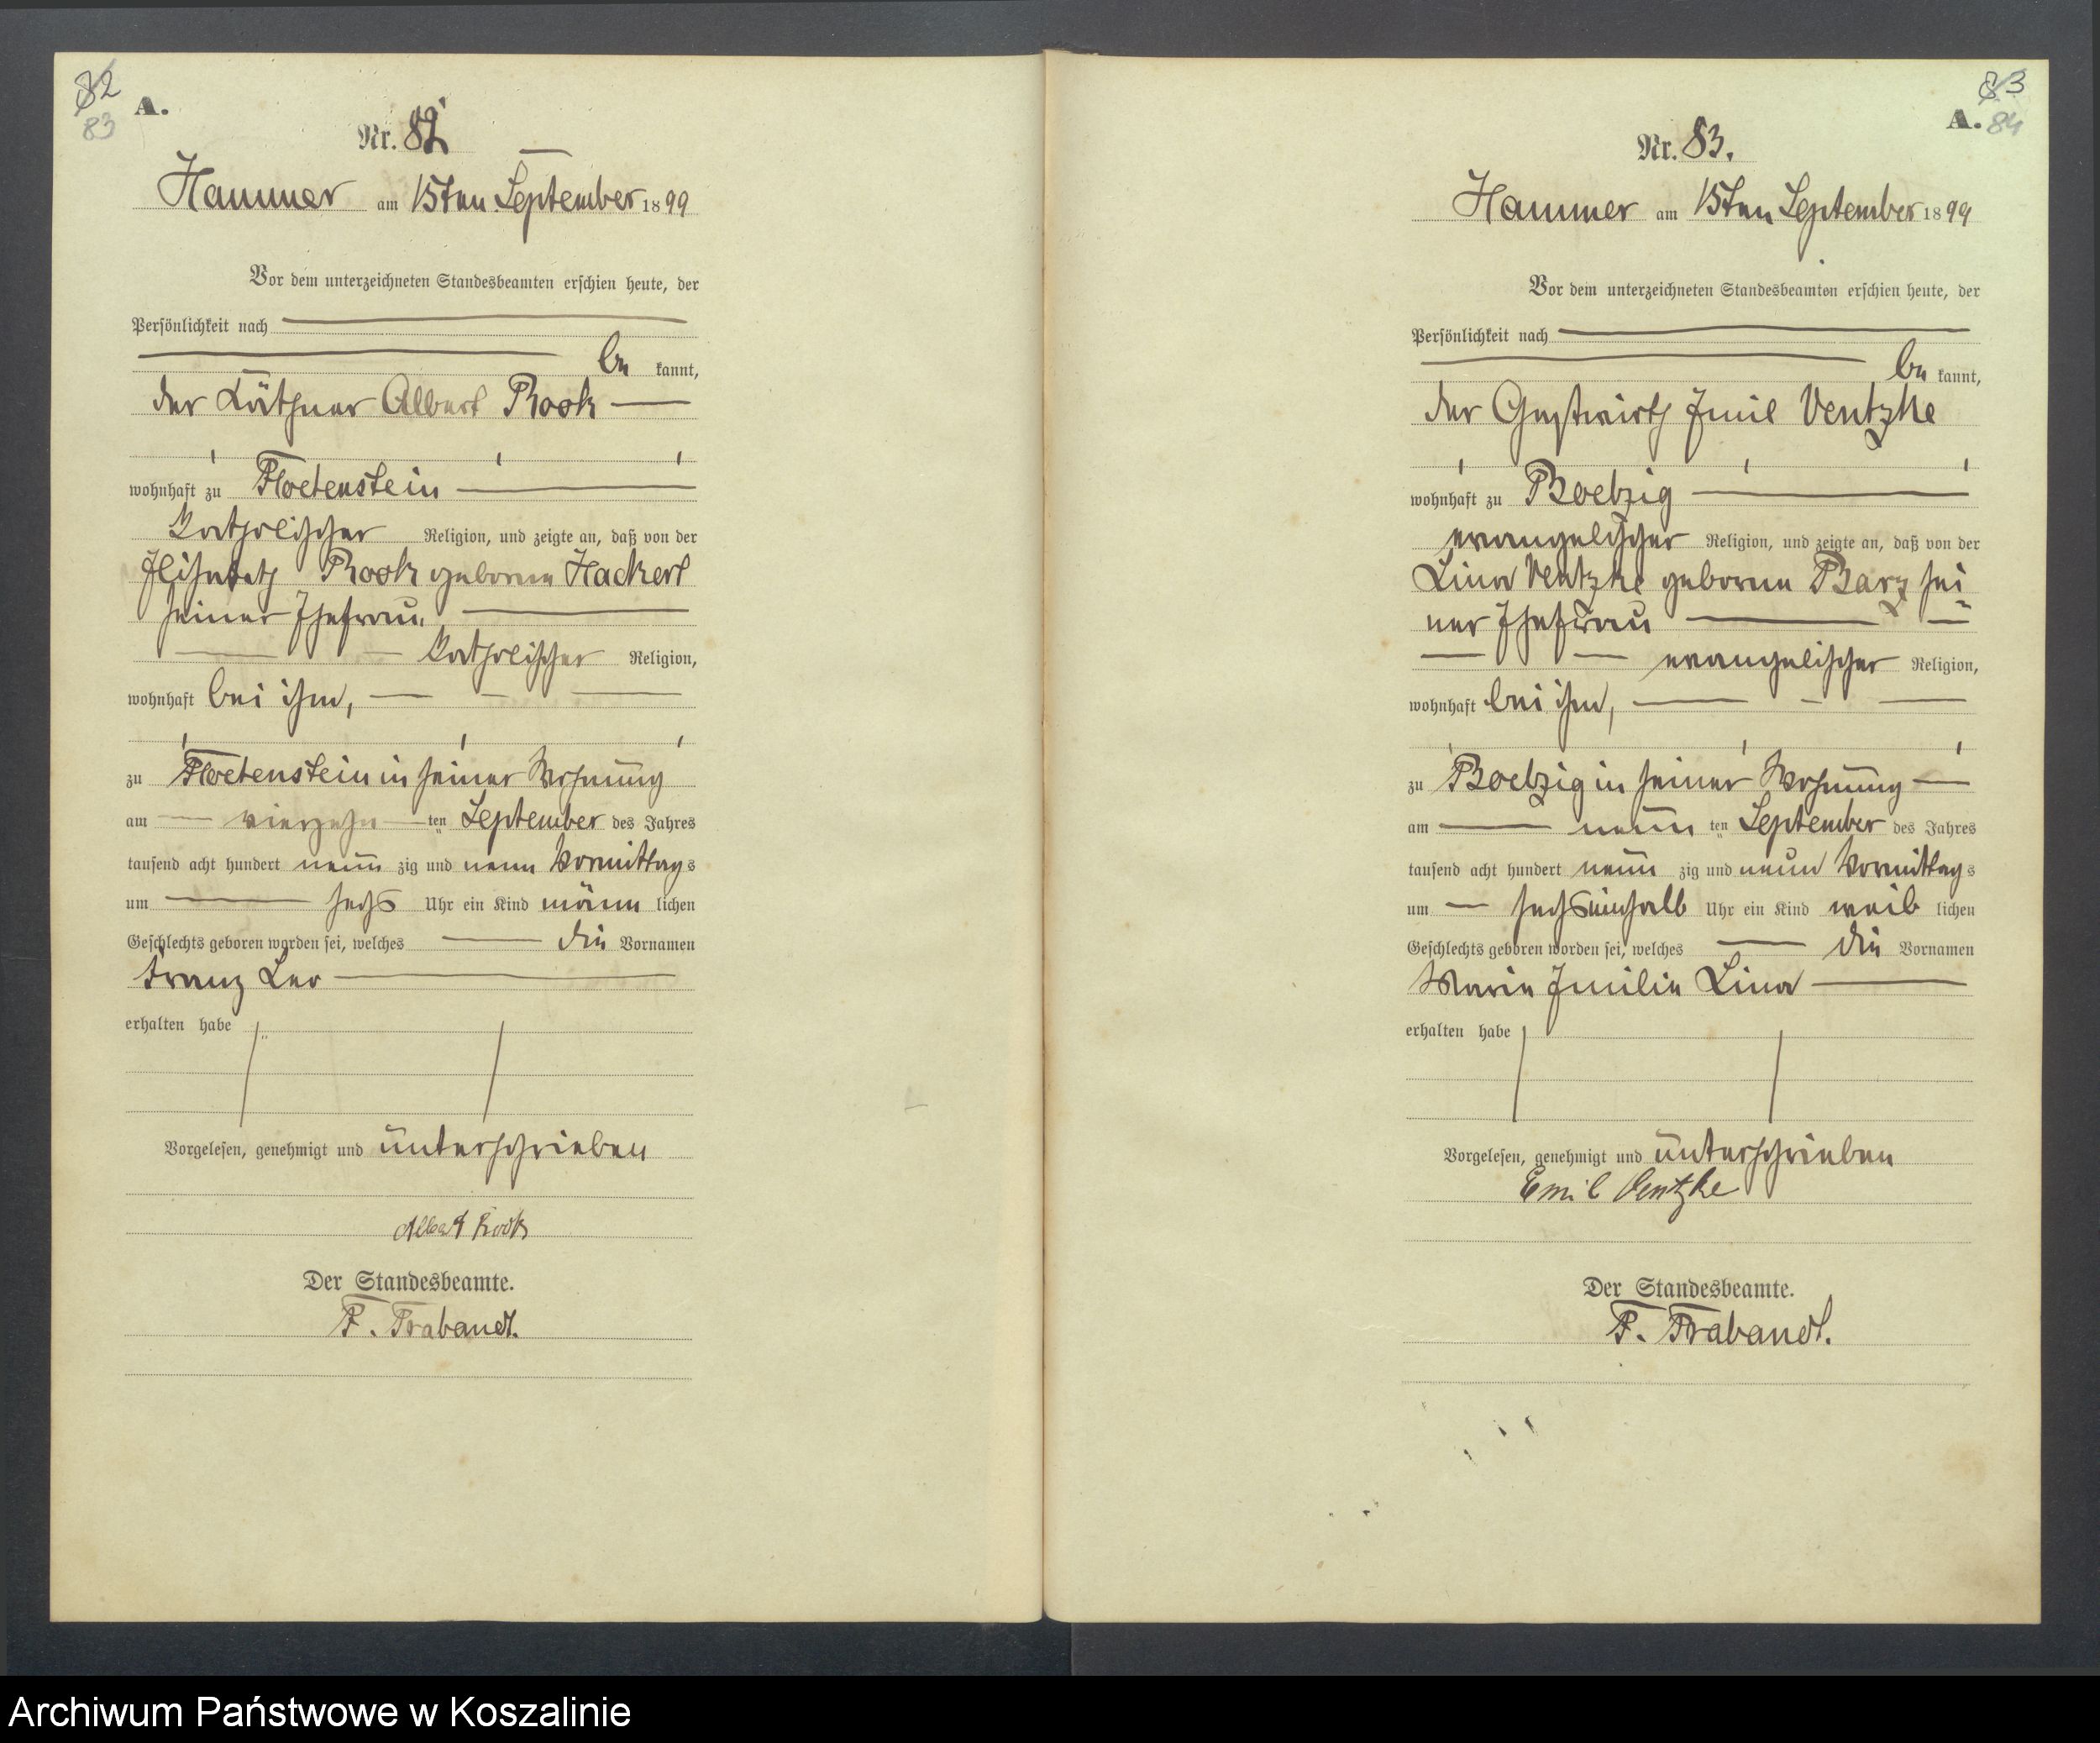 82
83
A.
Nr. 82
Hammer am 15ten September 1899
Vor dem unterzeichneten Standesbeamten erschien heute, der
Persönlichkeit nach
be kannt,
der Käthner Albert Rook
wohnhaft zu Floetenstein
katholischer Religion, und zeigte an, daß von der
Elisabeth Rook geborene Hackert
seiner Ehefrau,
katholischer Religion,
wohnhaft bei ihm,
zu Floetenstein in seiner Wohnung
am vierzehn ten September des Jahres
tausend acht hundert neun zig und neun Vormittags
um sechs Uhr ein Kind männ lichen
Geschlechts geboren worden sei, welches die Vornamen
Franz Leo
erhalten habe
Vorgelesen, genehmigt und unterschrieben
Albert Rook
Der Standesbeamte.
F. Trabandt.
83
A. 84
Nr. 83.
Hammer am 15ten September 1899
Vor dem unterzeichneten Standesbeamten erschien heute, der
Persönlichkeit nach
be kannt,
der Gastwirth Emil Ventzke
wohnhaft zu Boelzig
evangelischer Religion, und zeigte an, daß von der
Lina Ventzke geborene Barz sei
ner Ehefrau
evangelischer Religion,
wohnhaft bei ihm,
zu Boelzig in seiner Wohnung
am neun ten September des Jahres
tausend acht hundert neun zig und neun Vormittags
um sechseinhalb Uhr ein Kind weib lichen
Geschlechts geboren worden sei, welches die Vornamen
Marie Emilie Lina
erhalten habe
Vorgelesen, genehmigt und unterschrieben
Emil Ventzke
Der Standesbeamte.
F. Trabandt.
Archiwum Państwowe w Koszalinie